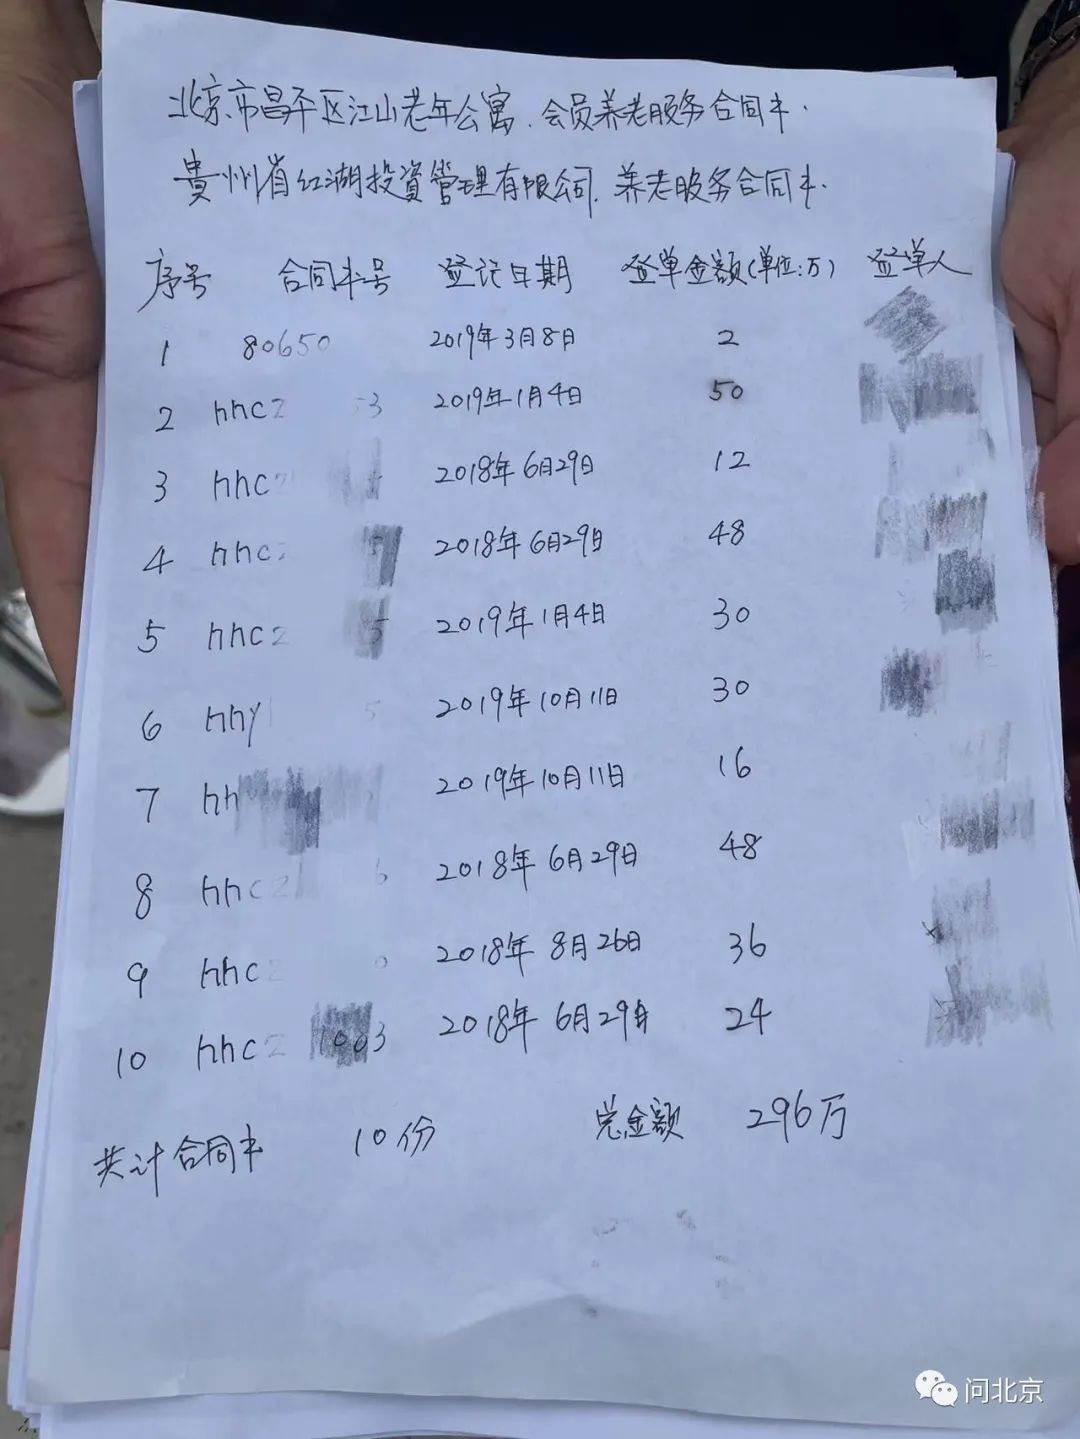 北京市昌平区江山老年公寓.会员养老服务合同书.
贵州省红湖投资管理有限公司.养老服务合同书.
序号 合同书号 登记日期 登单金额(单位:万) 登单人
1 80650 2019年3月8日 2
2 hhcz 53 2019年1月4日 50
3 hhcz 2018年6月29日 12
4 hhcz 2018年6月29日 48
5 hhcz 5 2019年1月4日 30
6 hhy 5 2019年10月11日 30
7 hh 2019年10月11日 16
8 hhcz 6 2018年6月29日 48
9 hhcz 0 2018年8月26日 36
10 hhcz 1003 2018年6月29日 24
共计合同书 10份 总金额 296万
问北京